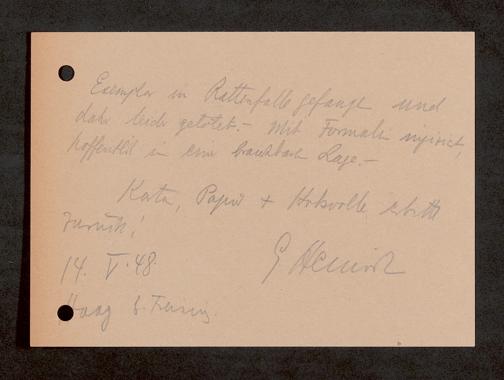 Exemplar in Rattenfalle gefangen und
dabei leider getötet. – Mit Formalin injiziert,
hoffentlich in ein brauchbare Lage. –
Karton, Papier + Holzwolle erbitte
zurück!
14. V. 48.
Haag b. Freising.